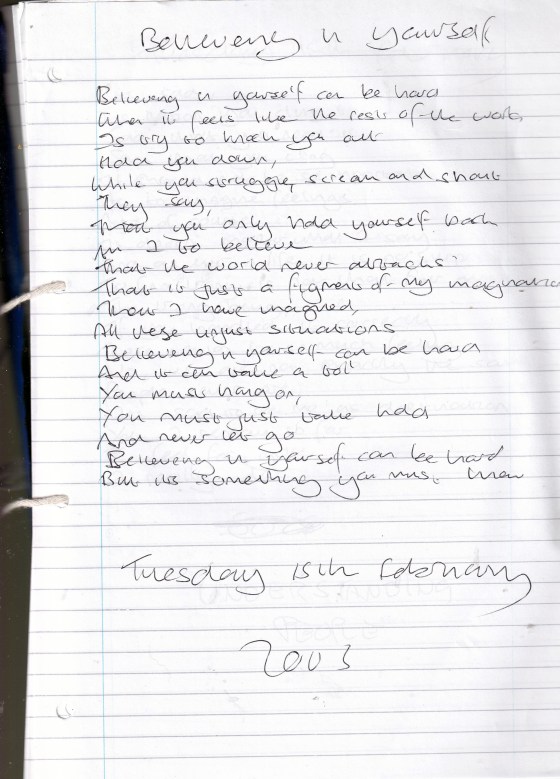 Believeng in yourself
Believeng in yourself can be hard
When it feels like the rest of the world
Is try to knock you out
Hold you down,
While you struggle, scream and shout
They say,
That you only hold yourself back
Am I to believe
That the world never attacks
That is just a figment of my imagination
That I have imagined,
All these unjust situations
Believeng in yourself can be hard
And it can take a toll
You must hang on,
You must just take hold
And never let go
Believeng in yourself can be hard
But its something you must know
Tuesday 15th February
2003